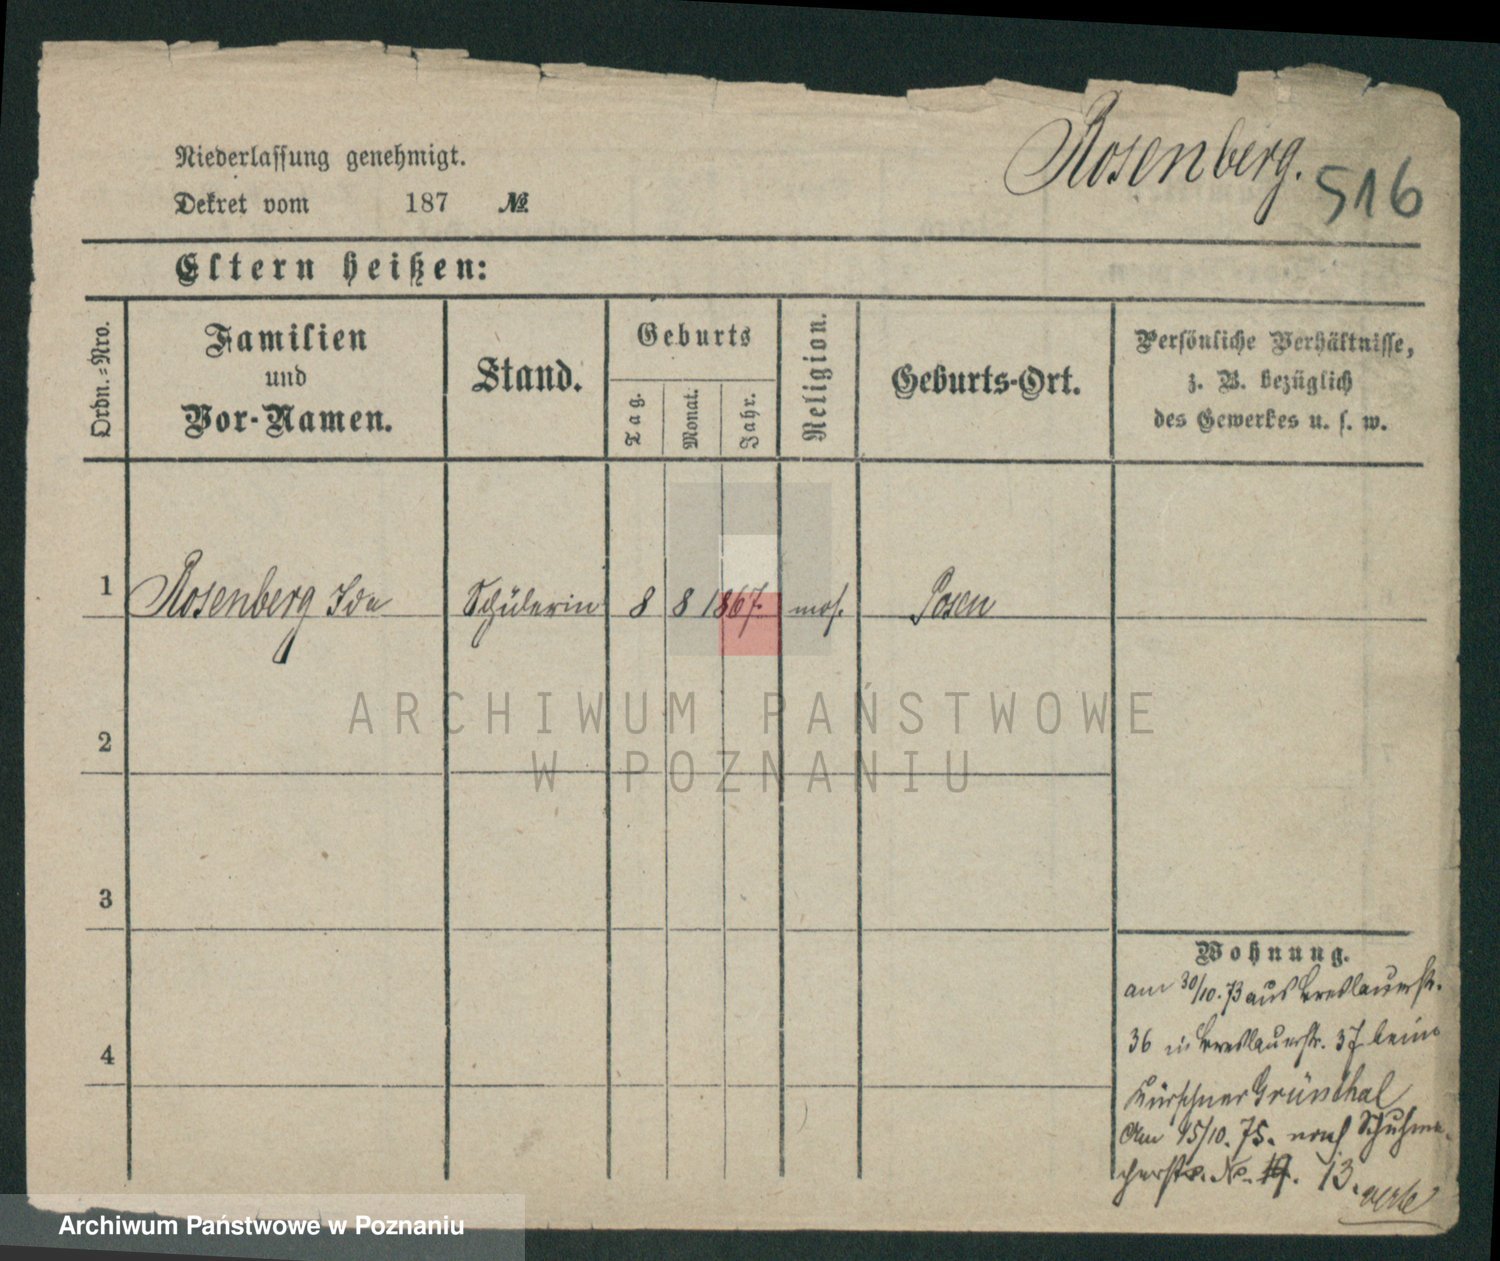 Rosenberg. 516
Niederlassung genehmigt.
Dekret vom 187 №
Eltern heißen:
Ordn.-Nro.
Familien
und
Vor-Namen.
Stand.
Geburts
Tag.
Monat.
Jahr.
Religion.
Geburts-Ort.
Persönliche Verhältnisse,
z. B. bezüglich
des Gewerkes u. s. w.
1 Rosenberg Ida Schülerin 8 8 1867. mos. Posen
ARCHIWUM PAŃSTWOWE
W POZNANIU
2
3
4
Wohnung.
am 30/10. 73 aus Breslauerstr.
36 in Breslauerstr. 37 beim
Kürschner Grünthal
Am 15/10. 75. nach Schuhma-
cherstr. No. 19. 13.
verte
Archiwum Państwowe w Poznaniu